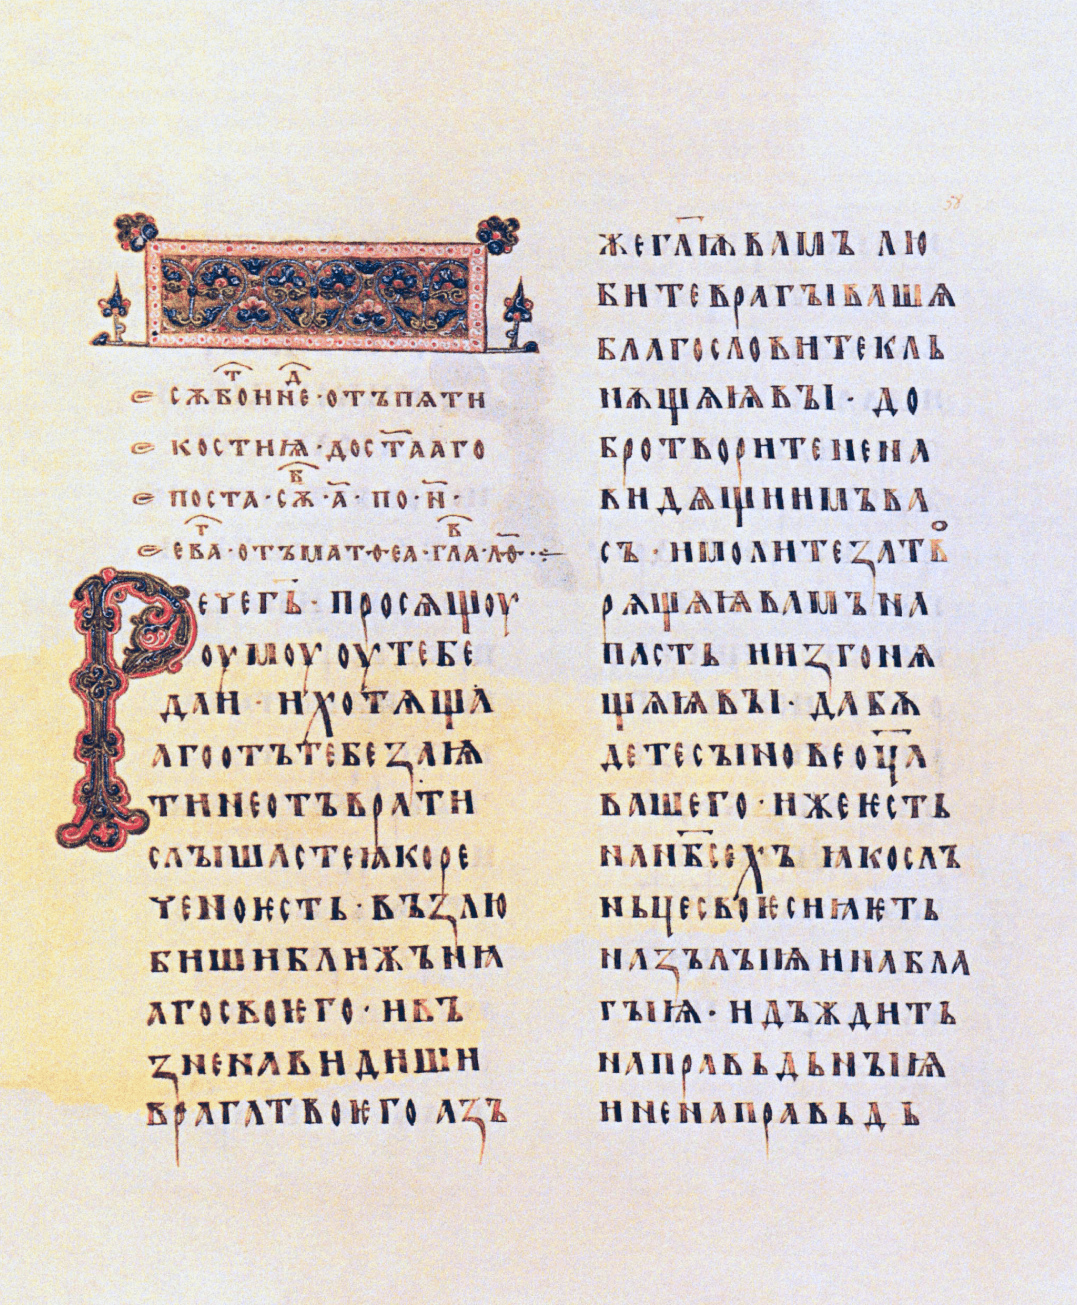 58
сѫбⷮонⷣне·отъпѧти
костиꙗ·дост҃ааго
поста·сѫⷠ·а҃·по·н҃·
еⷢва·отъмат·ѳ·еа·глⷡа·ло҃·
Речегь҃·просѧщоу
оумоуоутебе
даи·ихотѧща
агоотътебезаѩ
тинеотъврати
слъішастеꙗкоре
ченоѥсть·възлю
бишиближьнꙗ
агосвоѥго·инъ
зненавидиши
врагатвоѥго азъ
жегл҃ѭвамъ лю
битеврагъівашѧ
благословитекль
нѫщѧꙗвъі·до
бротворитенена
видѧщиимъва
съ·имолитезатв
рѧщѧꙗвамъна
пасть иизгонѧ
щѧꙗвъі·дабѫ
детесъіновеоц҃а
вашего·ижеѥсть
нан҃бсехъ ꙗкослъ
ньцесвоѥсиꙗѥть
назълъіѩинабла
гъіѩ·идъждить
направьдьнъіѩ
иненаправьдь